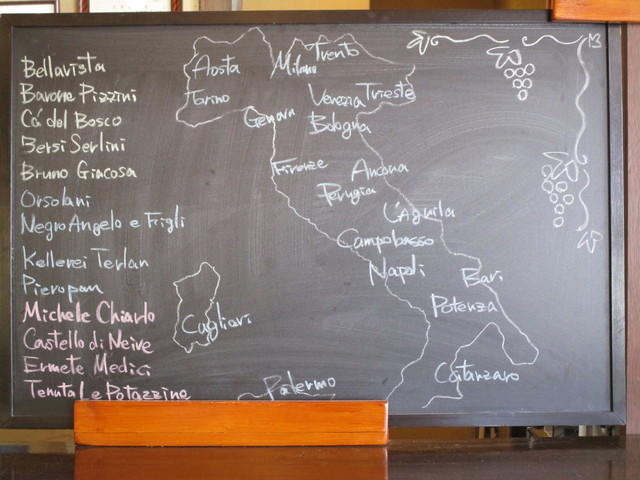 Bellavista
Barone Pizzini
Ca' del Bosco
Bersi Serlini
Bruno Giacosa
Orsolani
Negro Angelo e Figli
Kellerei Terlan
Pieropan
Michele Chiarlo
Castello di Neive
Ermete Medici
Tenuta Le Potazzine
Aosta
Milano
Trento
Torino
Venezia
Trieste
Genova
Bologna
Firenze
Ancona
Perugia
L'Aquila
Campobasso
Napoli
Bari
Potenza
Cagliari
Palermo
Catanzaro